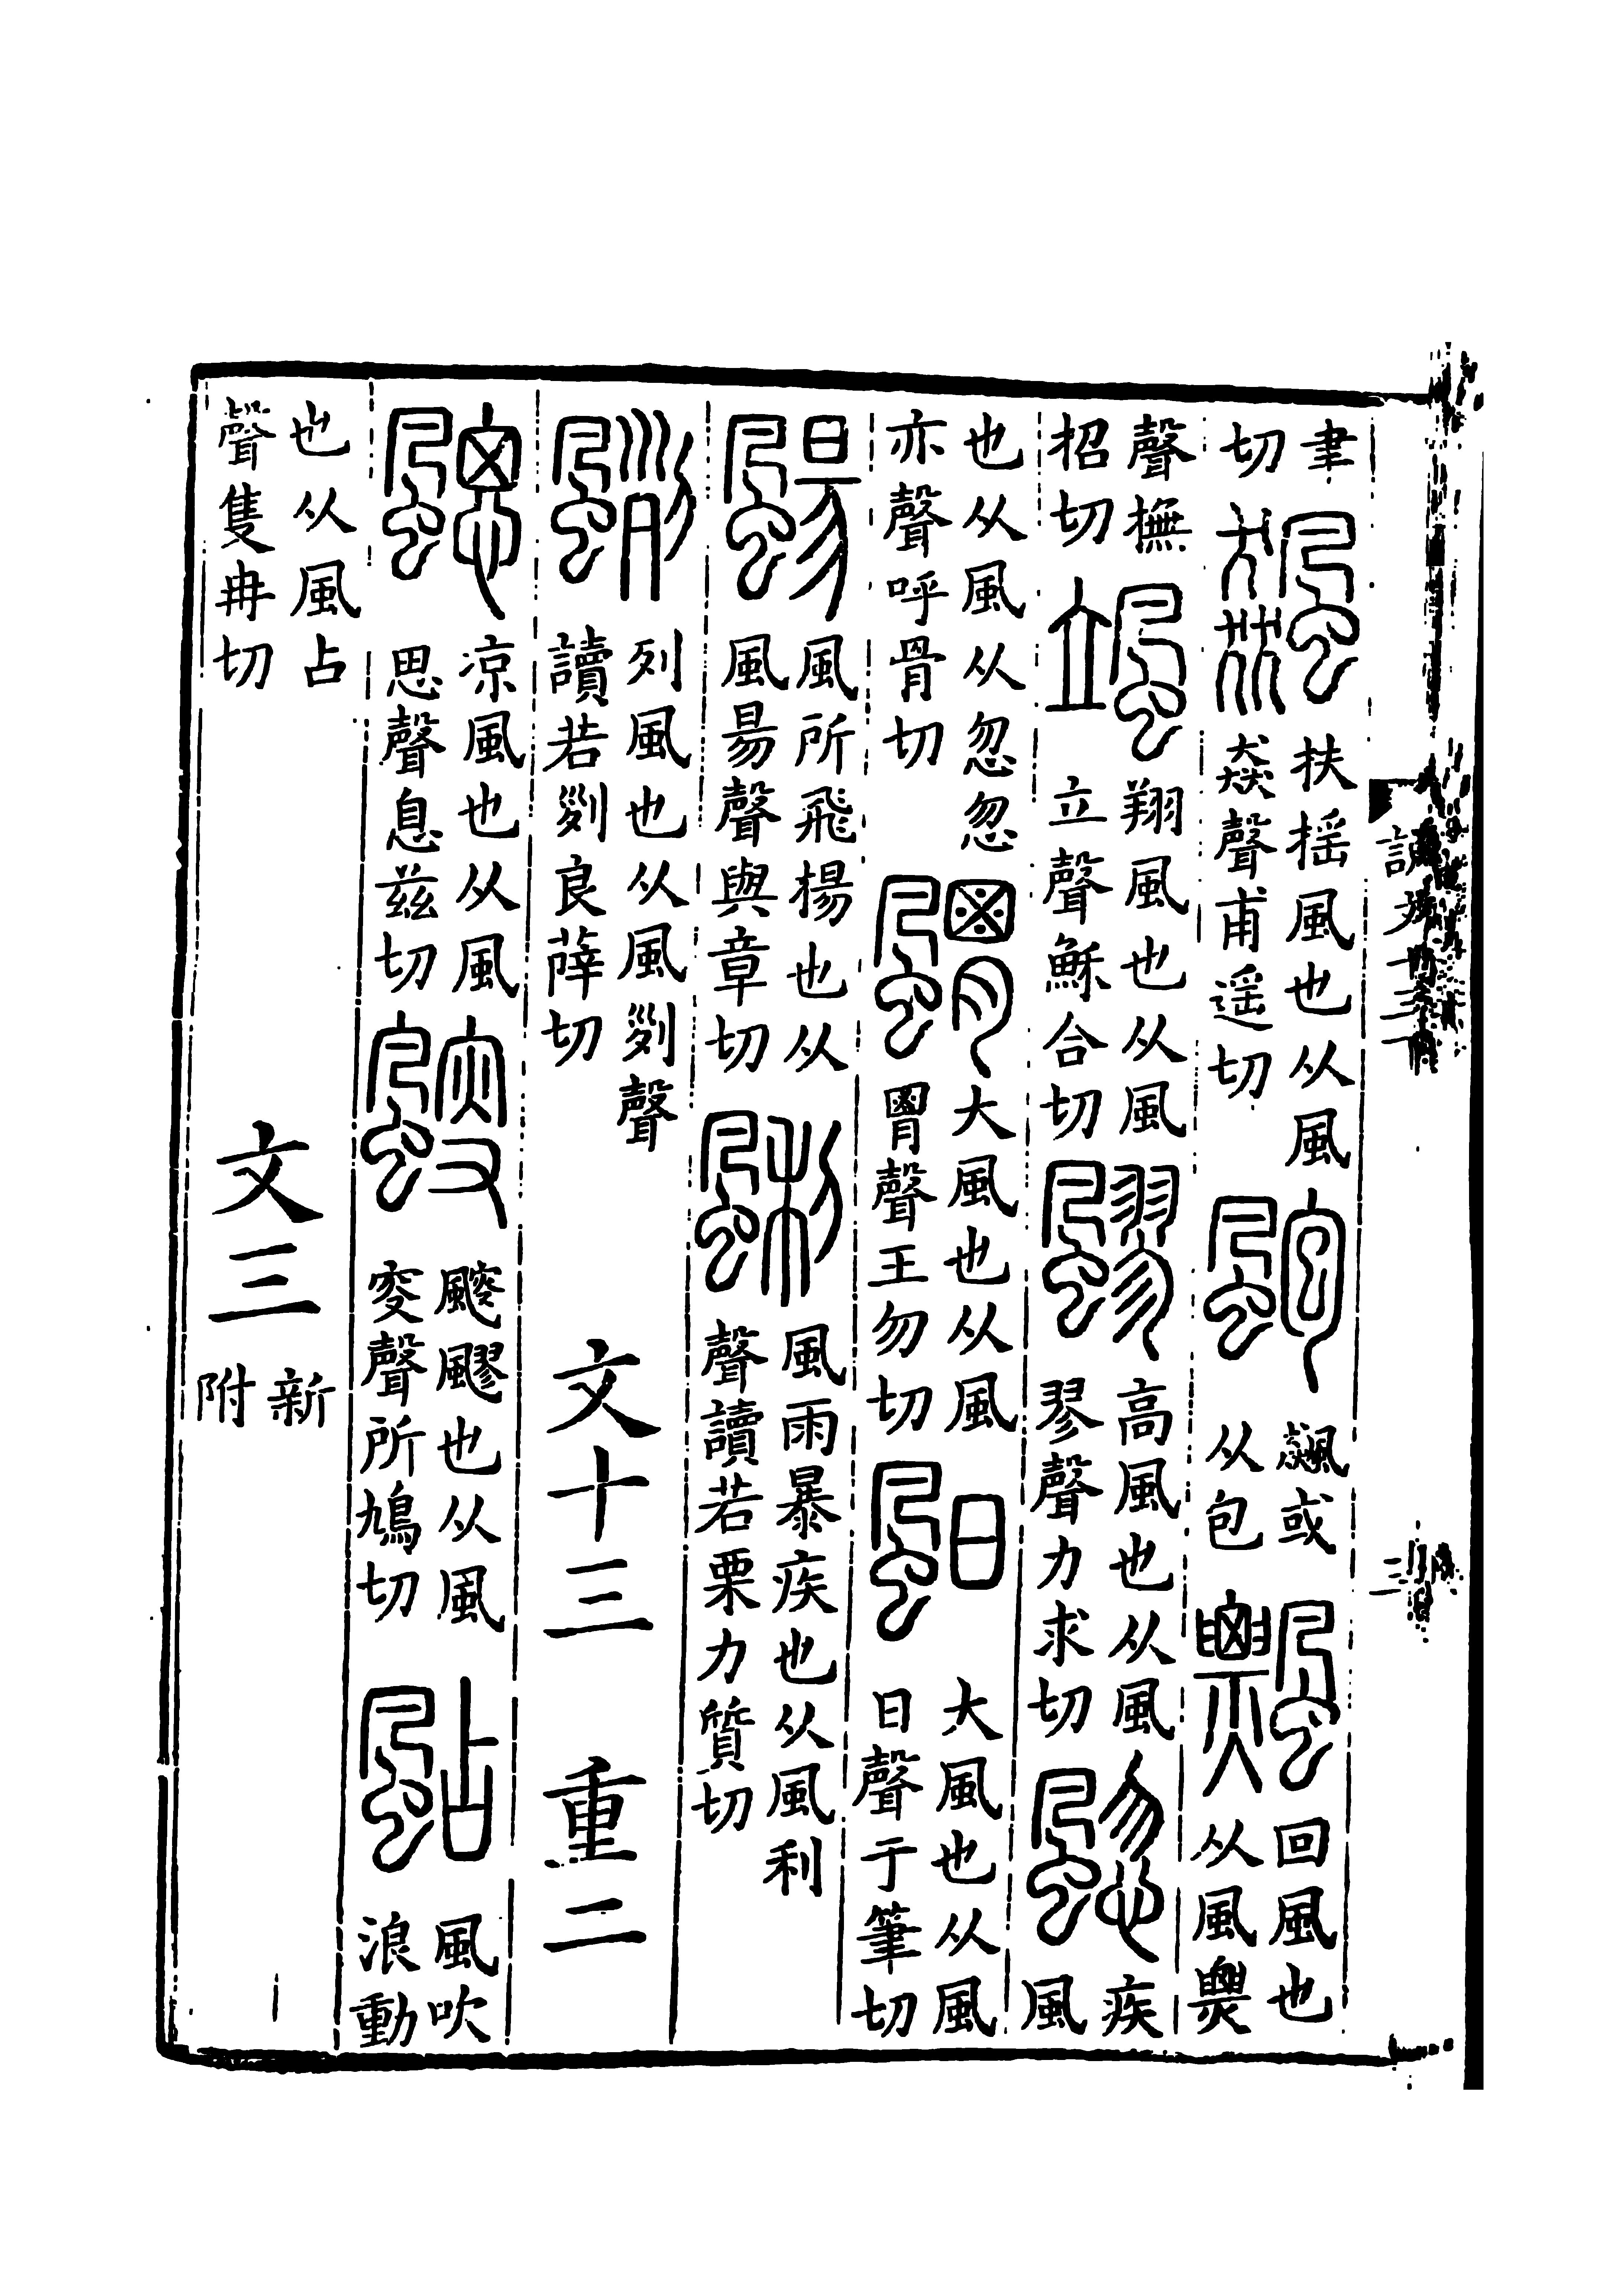 聿切 飆 扶揺風也从風猋聲甫遥切 颮 飆或从包 飄 回風也从風㷠
聲撫招切 颯 翔風也从風立聲穌合切 飂 高風也从風翏聲力求切 䬍 疾風
也从風从忽忽亦聲呼骨切 䬑 大風也从風胃聲王勿切 䫻 大風也从風日聲于筆切
颺 風所飛揚也从風昜聲與章切 䬆 風雨暴疾也从風利聲讀若栗力質切
颲 列風也从風𠛱聲讀若𠛱良薛切 文十三 重二
颸 凉風也从風思聲息兹切 颼 颼飂也从風叜聲所鳩切 颭 風吹浪動
也从風占聲隻冉切 文三 新附